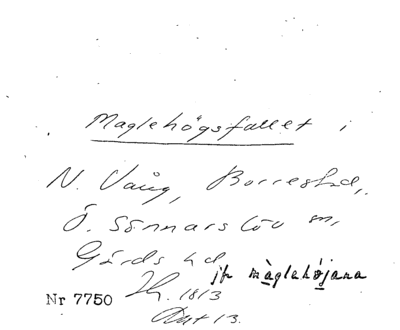 Maglehögsfallet i
N. Vång, Borrestad,
Ö. Sönnarslöv sn,
Gärds hd
jfr màglehöjana
Nr 7750
1813
13.